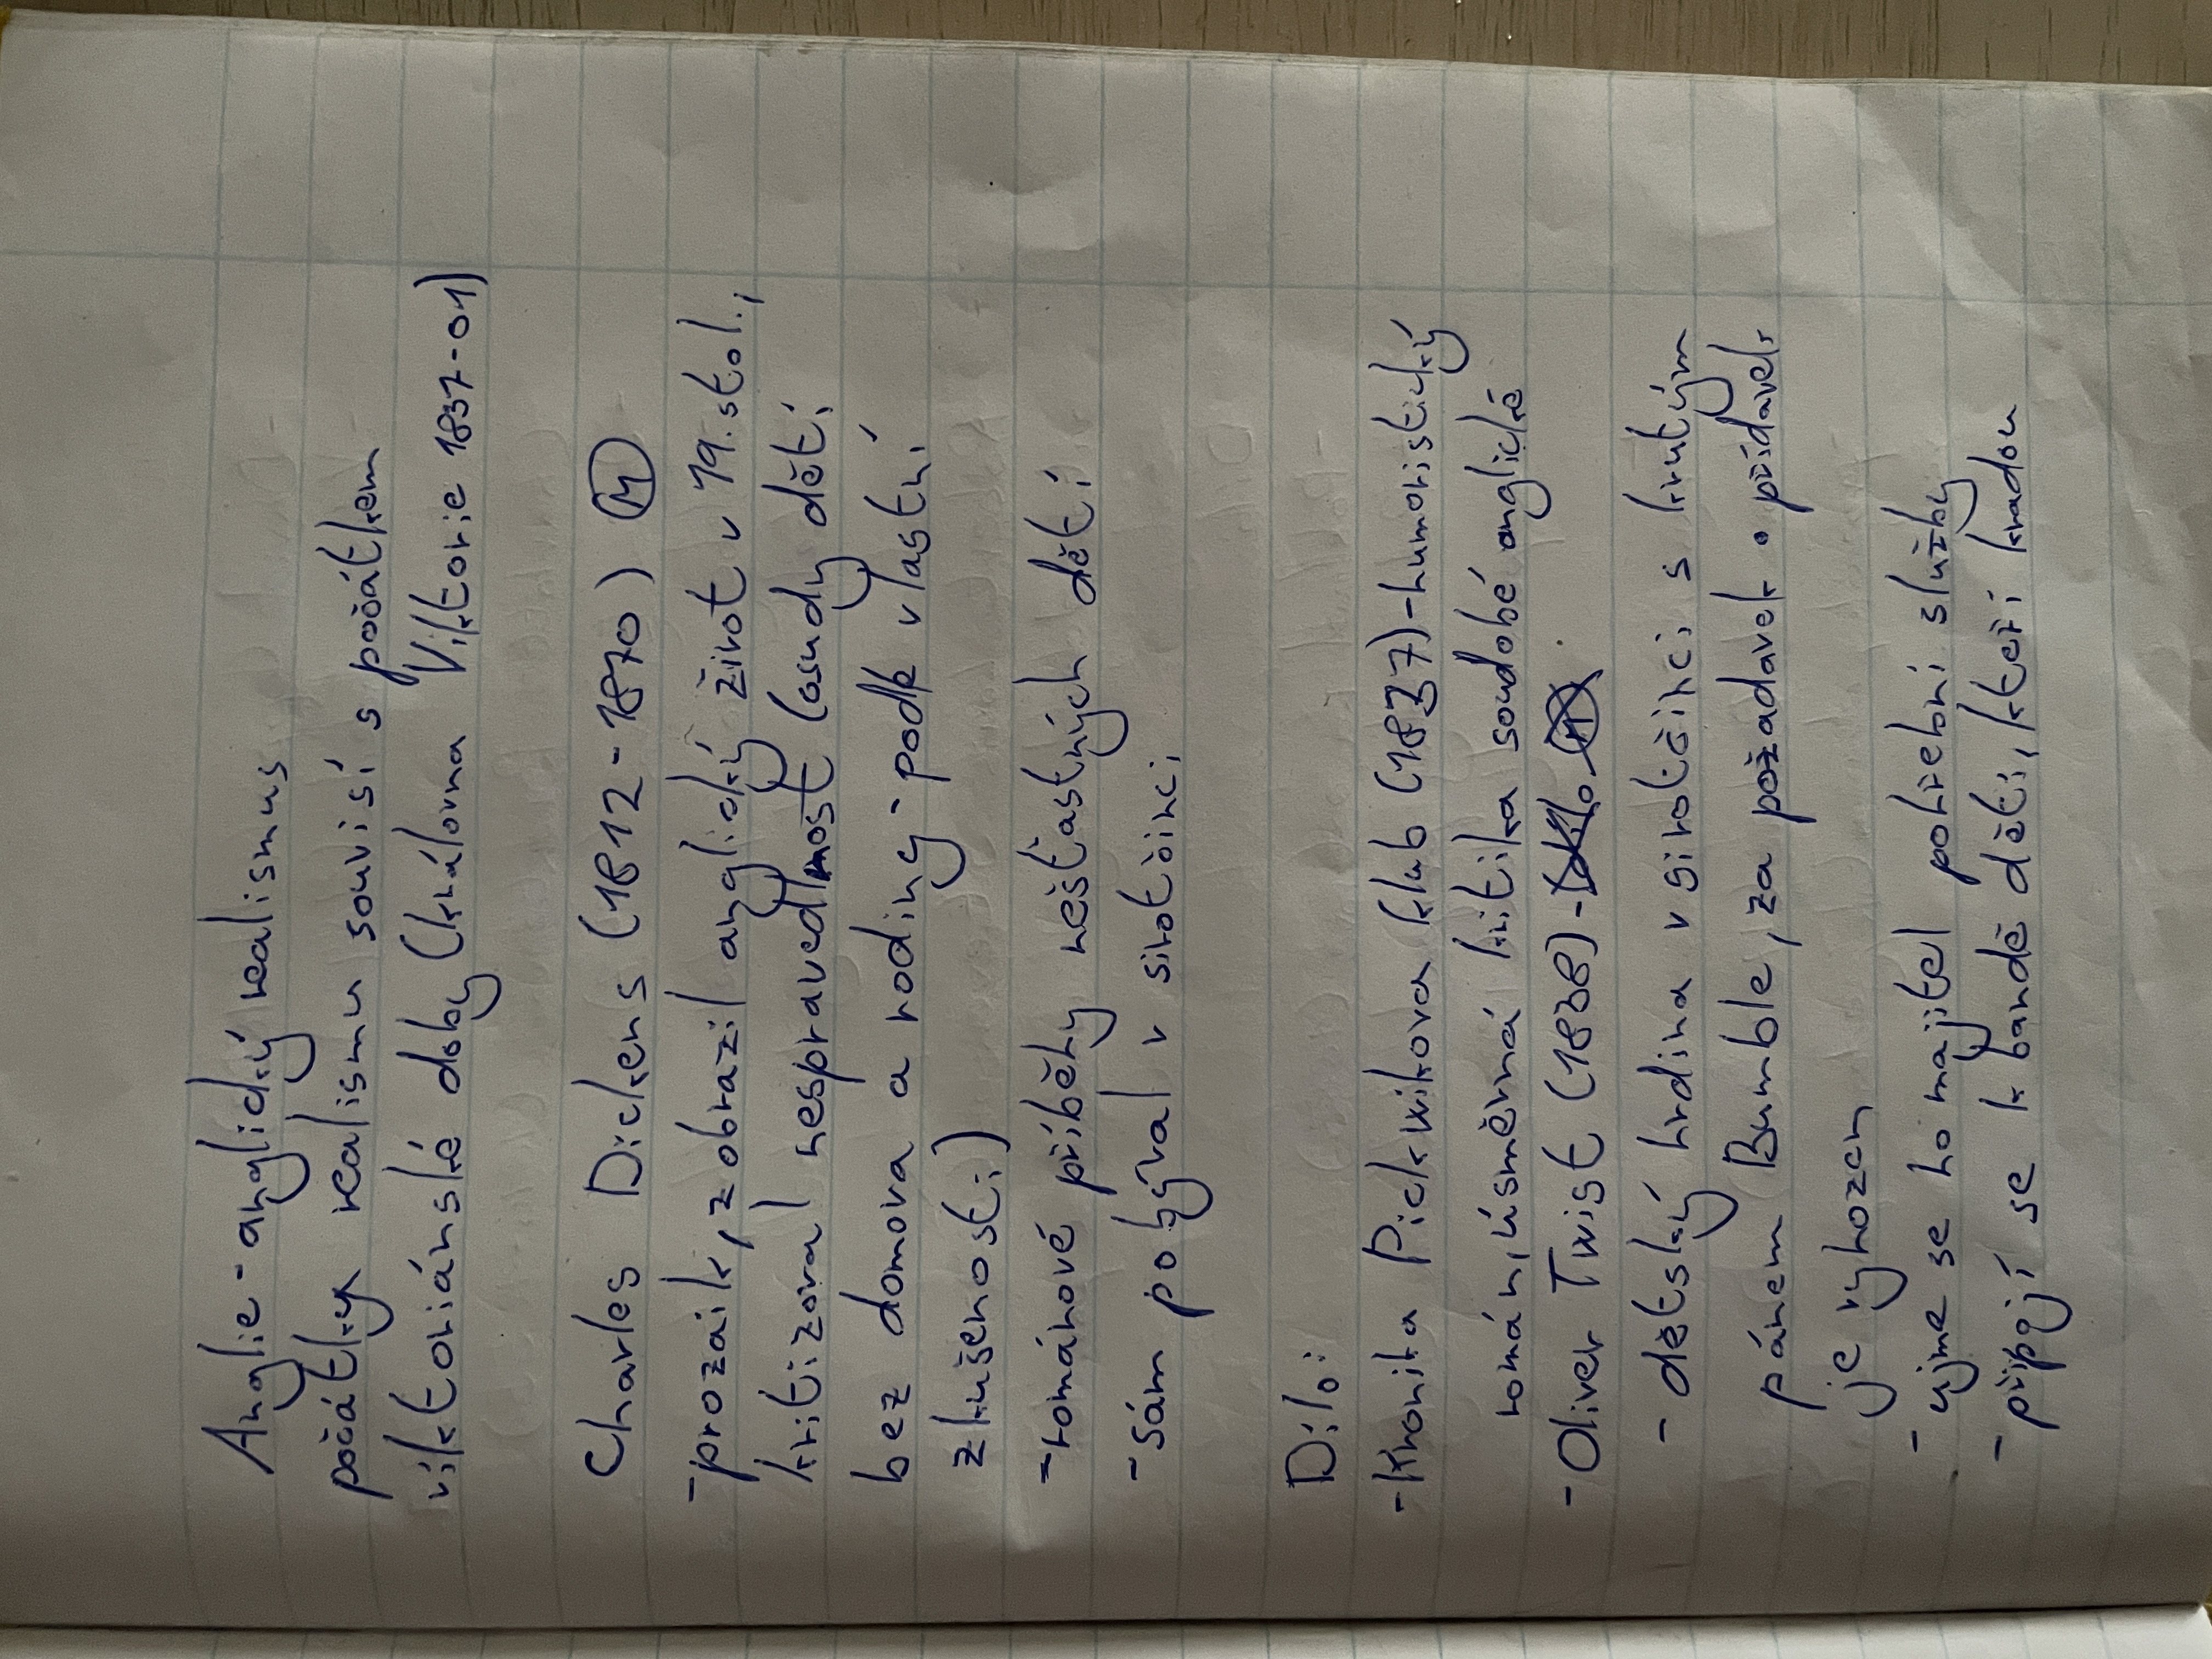 Anglie - anglický realismus
počátky realismu souvisí s počátkem
viktoriánské doby (královna Viktorie 1837-01)
Charles Dickens (1812-1870) M
-prozaik, zobrazil anglický život v 19. stol.,
kritizoval nespravedlnost (osudy dětí
bez domova a rodiny - podle vlastní
zkušenosti)
-románové příběhy nešťastných dětí
-sám pobýval v sirotčinci
Dílo:
-Kronika Pickwikova klub (1837)-humoristický
román, úsměrná kritika soudobé anglické
-Oliver Twist (1838)-
- dětský hrdina v sirotčinci s krutým
pánem Bumble, za požadavek o přídavek
je vyhozen
- ujme se ho majitel pohřební služby
- připojí se k bandě dětí, kteří kradou